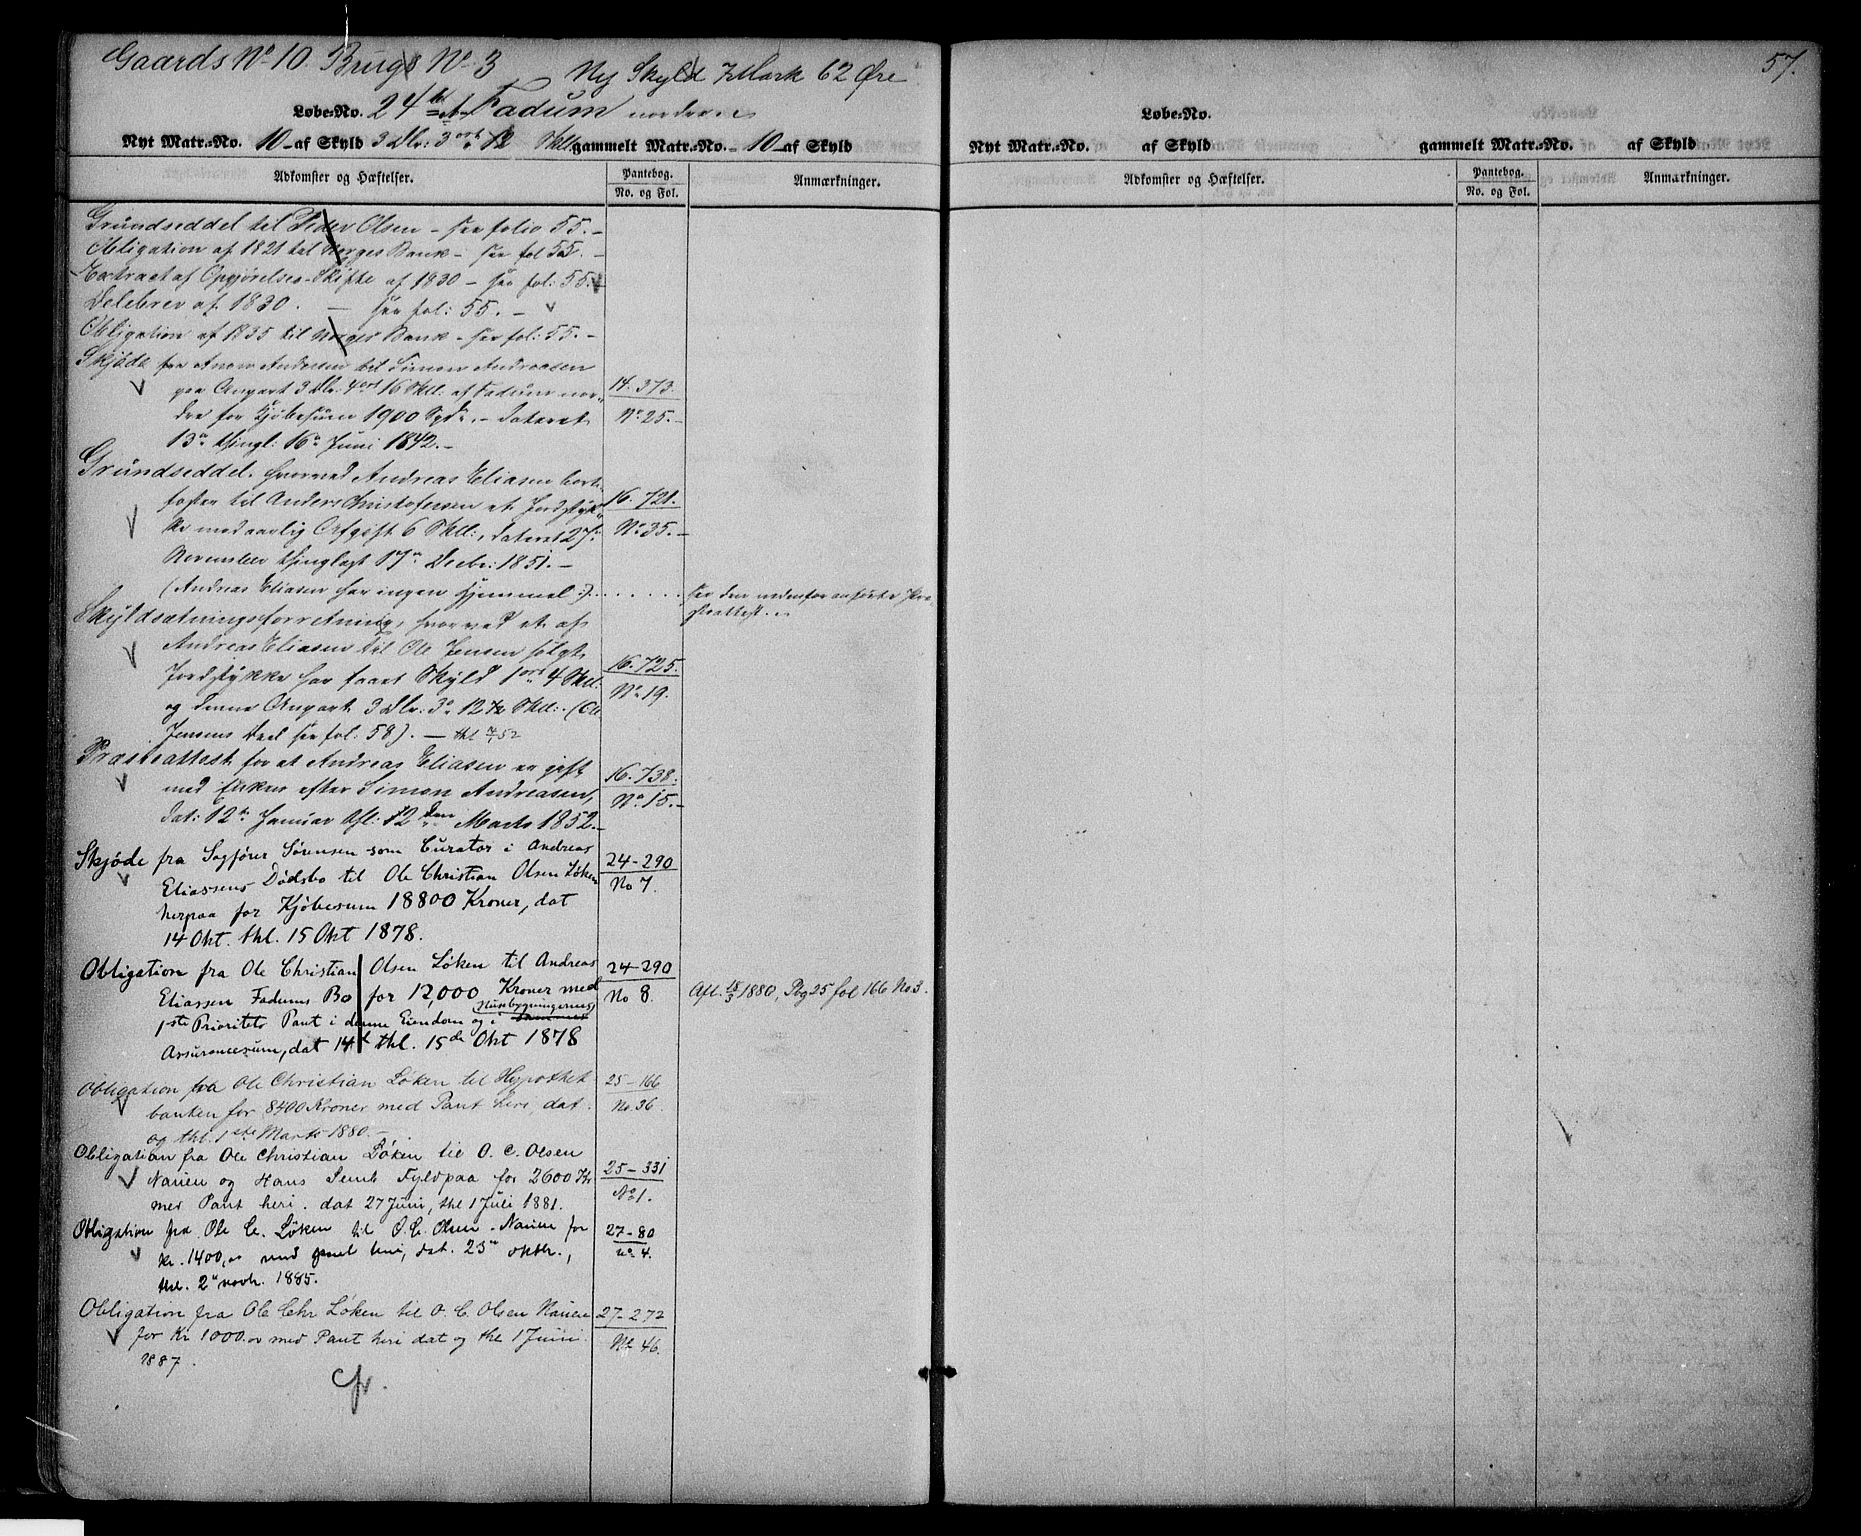 Gaards No 10 Brugs No 3 Ny Skyld 7 Mark 62 Øre
57.
Løbe-No. 24 Fadum nordre
Nyt Matr.-No. 10 af Skyld 3 Dlr. 3 ort 12 Skll gammelt Matr.-No. 10 af Skyld
Adkomster og Hæftelser. Pantebog. No. og Fol. Anmærkninger.
Grundseddel til Peder Olsen - see folio 55.-
Obligation af 1821 til Norges Bank - see fol 55.-
Extract af Opgjørelses-Skifte af 1830 - see fol: 55.
Delebrev af 1830. - see fol: 55.-
Obligation af 1835 til Norges Bank - see fol: 55.-
Skjøde fra Anders Andersen til Simon Andreasen
paa Anpart 3 Dlr: 4 ort 16 Skll: af Fadum nor-
dre for Kjøbesum 1900 Spd. - dateret
13de thingl: 16de Juni 1842.-
14. 373
No 25.-
Grundseddel, hvorved Andreas Eliasen bort-
fæster til Anders Christofersen et Jordstyk-
ke mod aarlig Afgift 6 Skll:, dateret 27de
November thinglyst 17de Decbr: 1851.-
(Andreas Eliasen har ingen Hjemmel :)......
16. 721.
No 35.-
see den nedenfor anførte Præ-
steattest.
Skyldsætningsforretning, hvorved et af
Andreas Eliasen til Ole Jensen solgt
Jordstykke har faaet Skyld 1 ort 4 Skll:
og denne Anpart 3 Dlr: 3 o 12 Skll:. (Ole
Jensens Deel see fol: 58). -
16. 725.
No 19.
Præsteattest for at Andreas Eliasen er gift
med Enken efter Simon Andreasen,
dat: 12te Januar thl: 12den Marts 1852.-
16. 738.
No 15.-
Skjøde fra Sagfører Sørensen som Curator i Andreas
Eliassens Dødsbo til Ole Christian Olsen Løken
herpaa for Kjøbesum 18800 Kroner, dat
14 Okt. thl. 15 Okt 1878.
24-290
No 7.
Obligation fra Ole Christian Olsen Løken til Andreas
Eliassen Fadums Bo for 12,000 Kroner med
1ste Prioritets Pant i denne Eiendom og i Husebygningernes
Assurancesum, dat 14de thl. 15de Okt 1878
24-290
No 8.
Afl. 15/3 1880, Pbg 25 fol 166 No 3.
Obligation fra Ole Christian Løken til Hypothek
banken for 8400 Kroner med Pant heri, dat.
og thl. 1ste Marts 1880.-
25-166
No 36.
Obligation fra Ole Christian Løken til O. C. Olsen
Nauen og Hans Fyldpaa for 2600 Kr
med Pant heri. dat 27 Juni, thl 1 Juli 1881.
25-331
No 1.
Obligation fra Ole C. Løken til O. C. Olsen Nauen for
kr. 1400,00 med pant heri, dat. 23de oktbr.,
thl. 2de novbr. 1885.
27-80
no 4.
Obligation fra Ole Chr Løken til O. C. Olsen Nauen
for Kr 1000.00 med Pant heri dat og thl 1 Juni
1887.
27-272
No 46.
cfr.
Løbe-No.
Nyt Matr.-No. af Skyld gammelt Matr.-No. af Skyld
Adkomster og Hæftelser. Pantebog. No. og Fol. Anmærkninger.